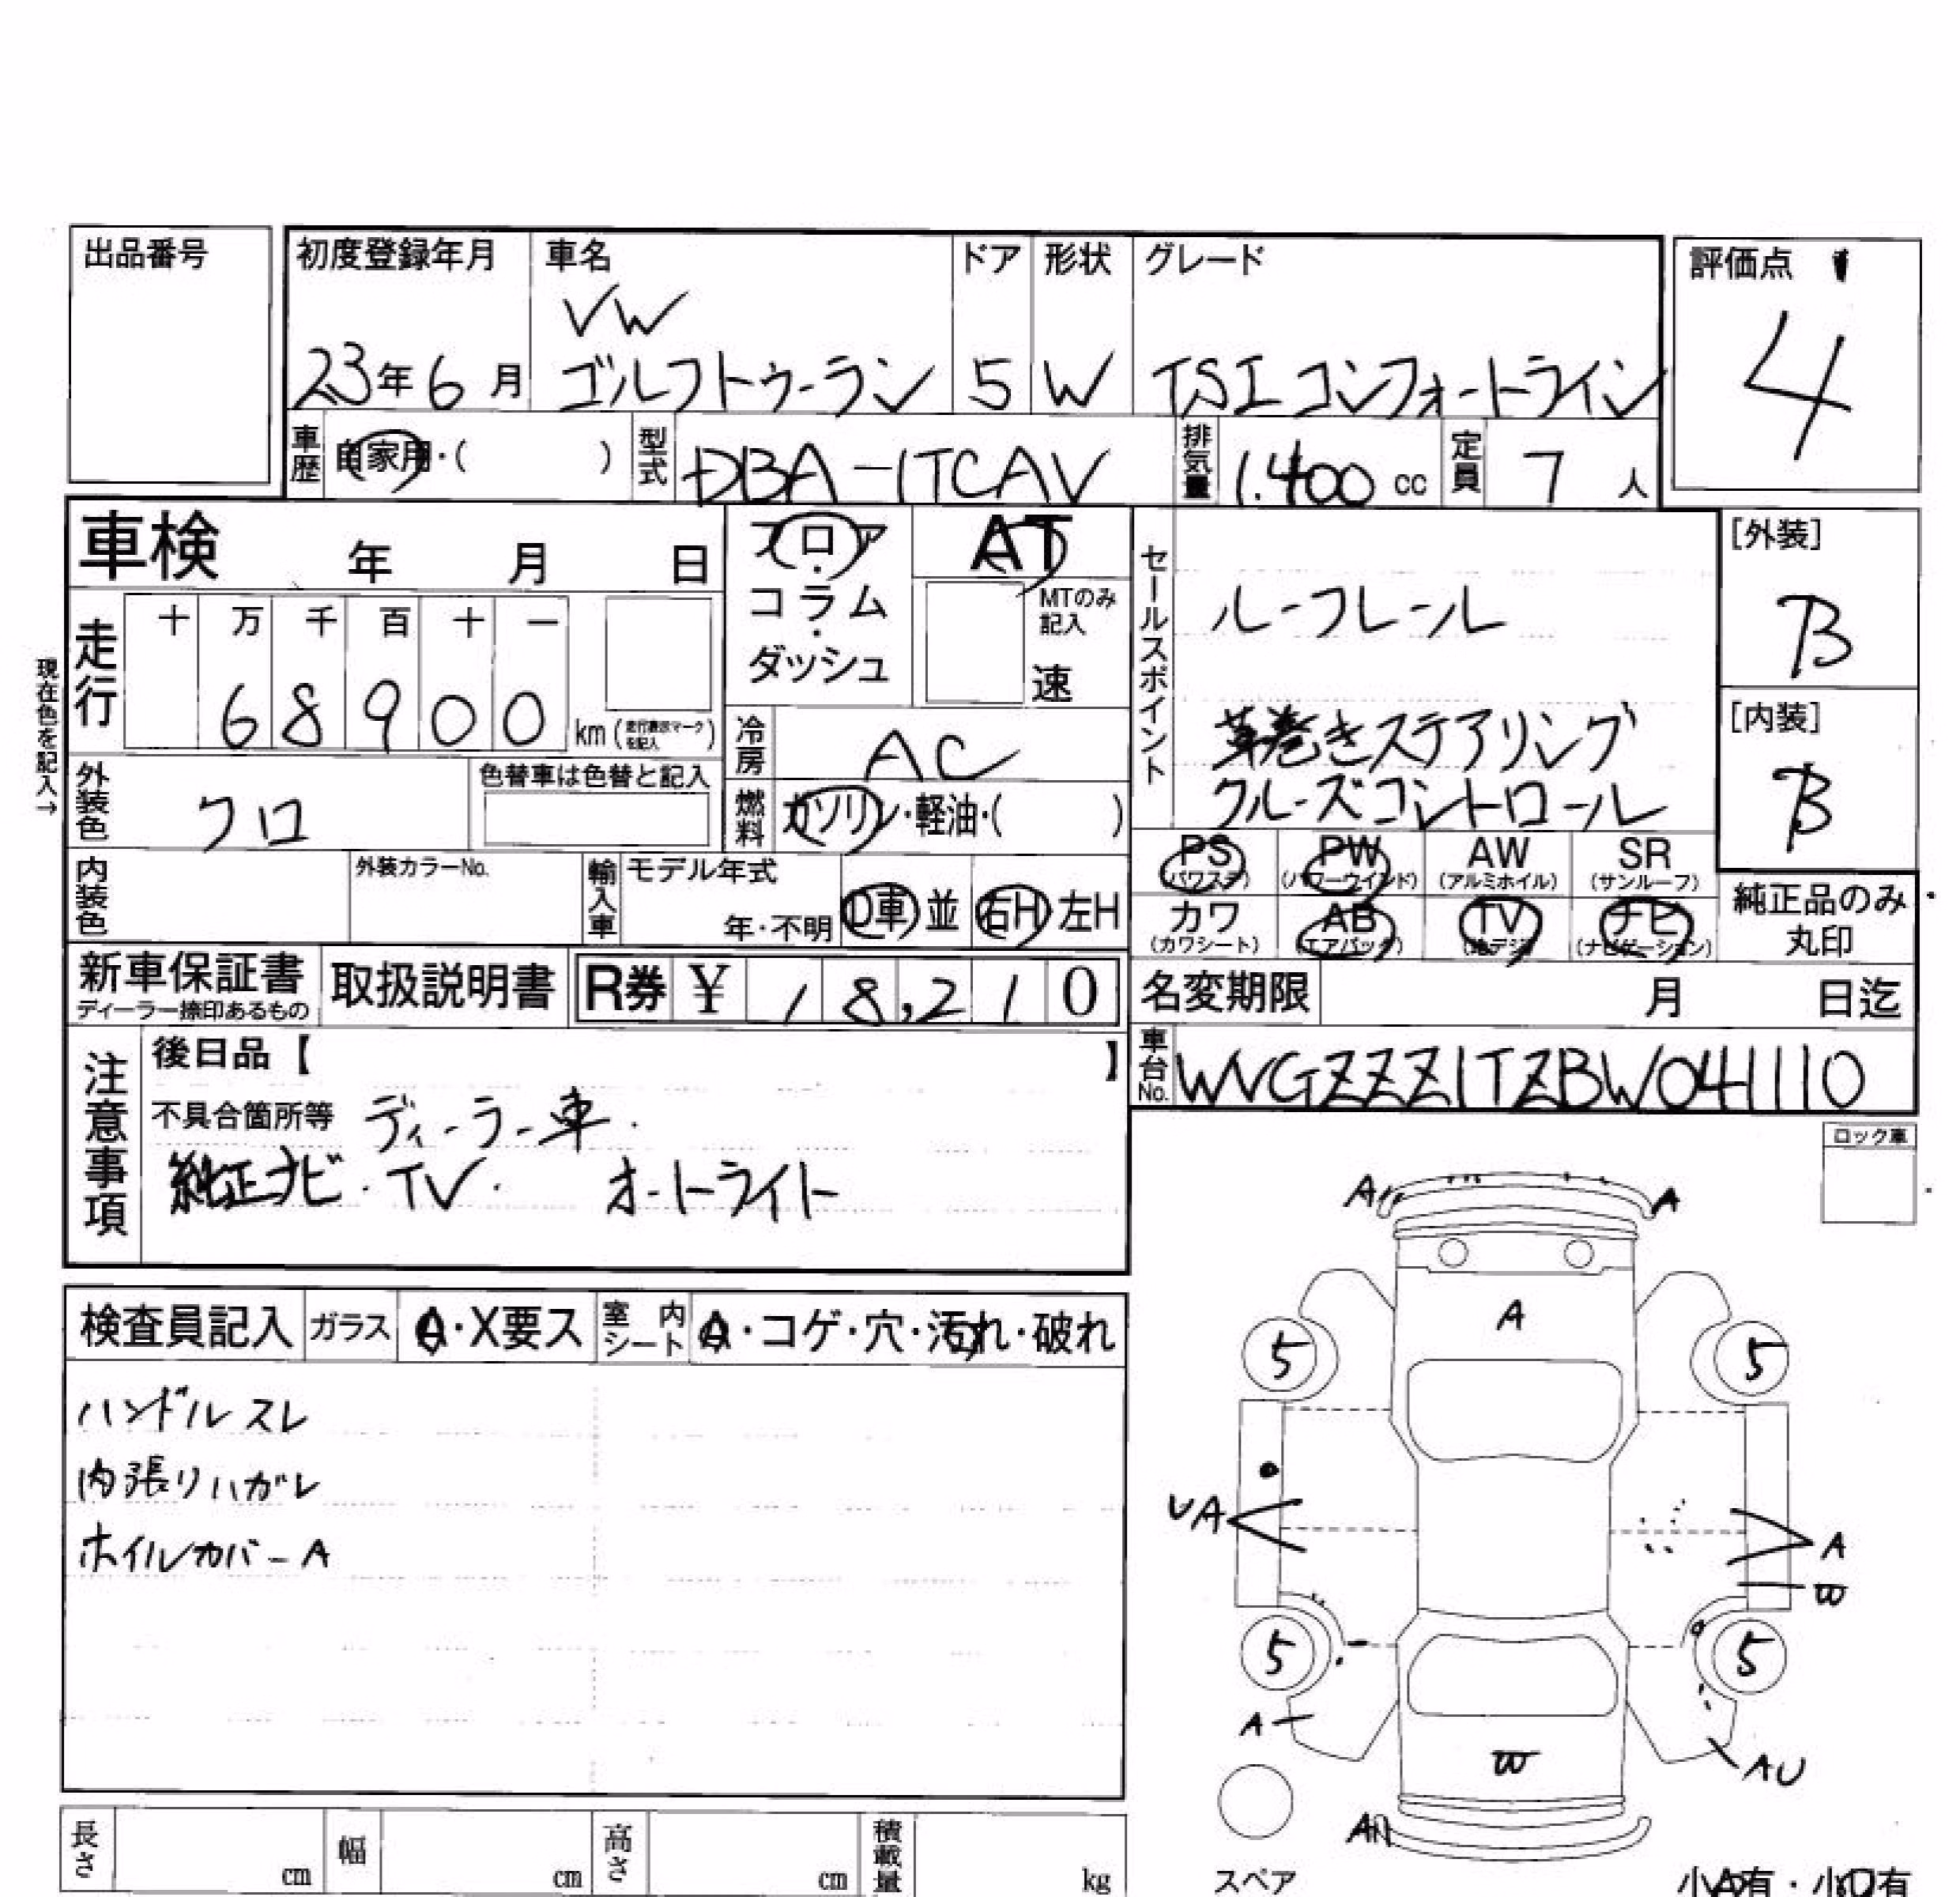 出品番号
初度登録年月 車名 ドア 形状 グレード 評価点
VW
23年6月 ゴルフトゥーラン 5 W TSI コンフォートライン 4
車歴 自家用・( ) 型式 DBA-1TCAV 排気量 1.400 cc 定員 7 人
車検 年 月 日
フロア・コラム・ダッシュ
AT
MTのみ記入
速
セールスポイント
ルーフレール
革巻きステアリング
クルーズコントロール
[外装]
B
[内装]
B
現在色を記入→
走行 十 万 千 百 十 一
6 8 9 0 0 km (走行表示マークを記入)
冷房 AC
外装色 クロ 色替車は色替と記入
燃料 ガソリン・軽油・( )
PS (パワステ) PW (パワーウインド) AW (アルミホイル) SR (サンルーフ)
カワ (カワシート) AB (エアバッグ) TV (地デジ) ナビ (ナビゲーション)
純正品のみ丸印
内装色 外装カラーNo. 輸入車 モデル年式 年・不明 D車 並 右H 左H
新車保証書 ディーラー捺印あるもの 取扱説明書 R券 ¥ 18,210
名変期限 月 日迄
車台No. WVGZZZ1TZBW041110
注意事項
後日品【 】
不具合箇所等 ディーラー車.
純正ナビ・TV. オートライト
ロック車
検査員記入 ガラス A・X要ス 室内シート A・コゲ・穴・汚れ・破れ
ハンドルスレ
内張リハガレ
ホイルカバーA
A A
A
5 5
UA A
W
5 5
A AU
W
A
スペア
小A有・小U有
長さ cm 幅 cm 高さ cm 積載量 kg